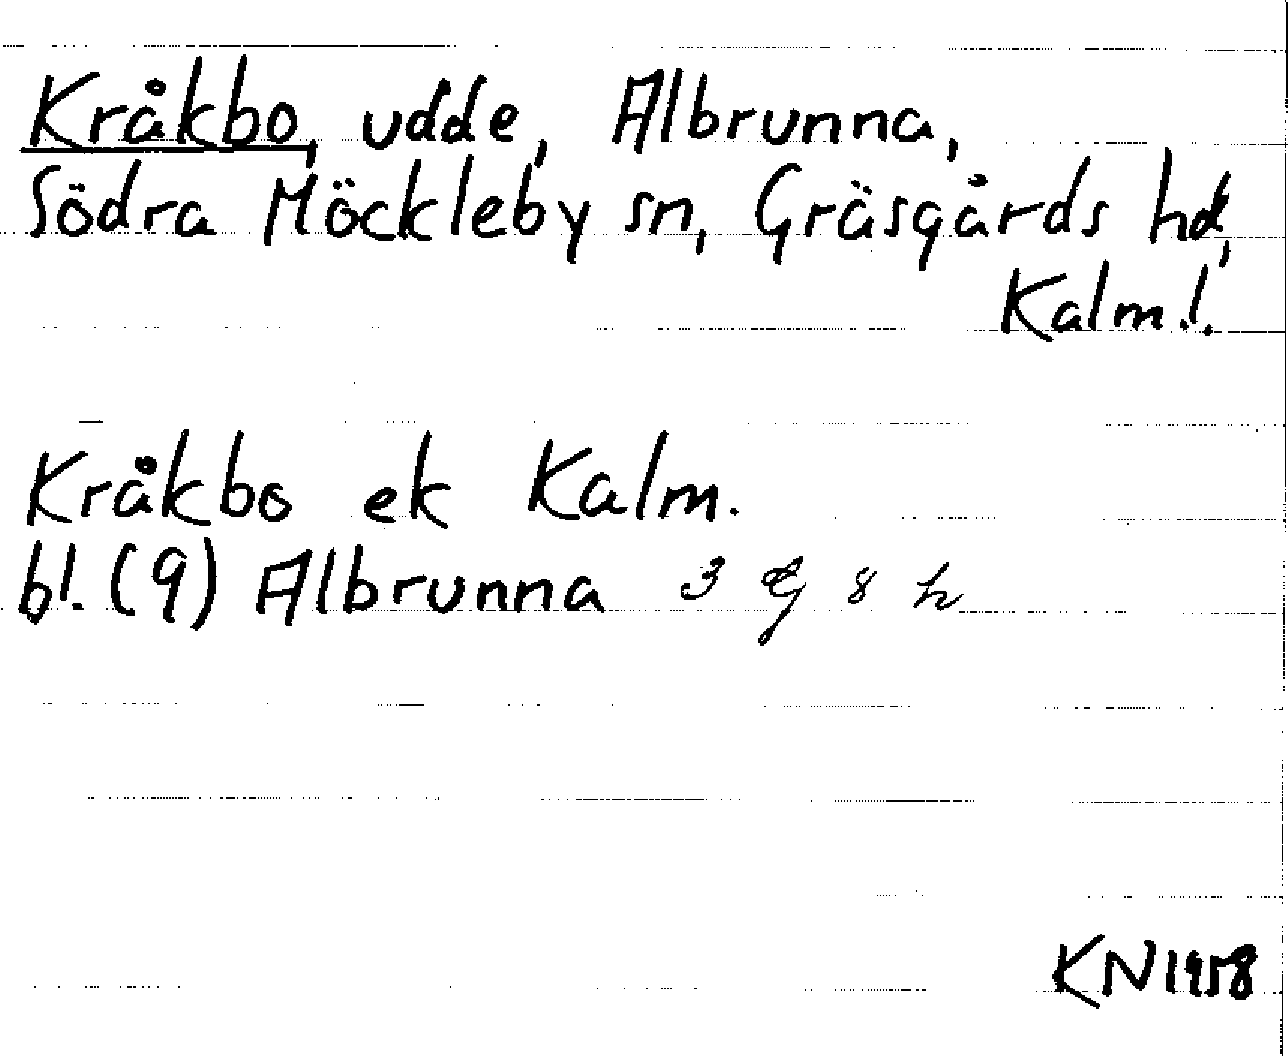 Kråkbo, udde, Albrunna,
Södra Möckleby sn, Gräsgårds hd,
Kalm.l.
Kråkbo ek Kalm.
bl. (9) Albrunna 3 G 8 h
KN 1958